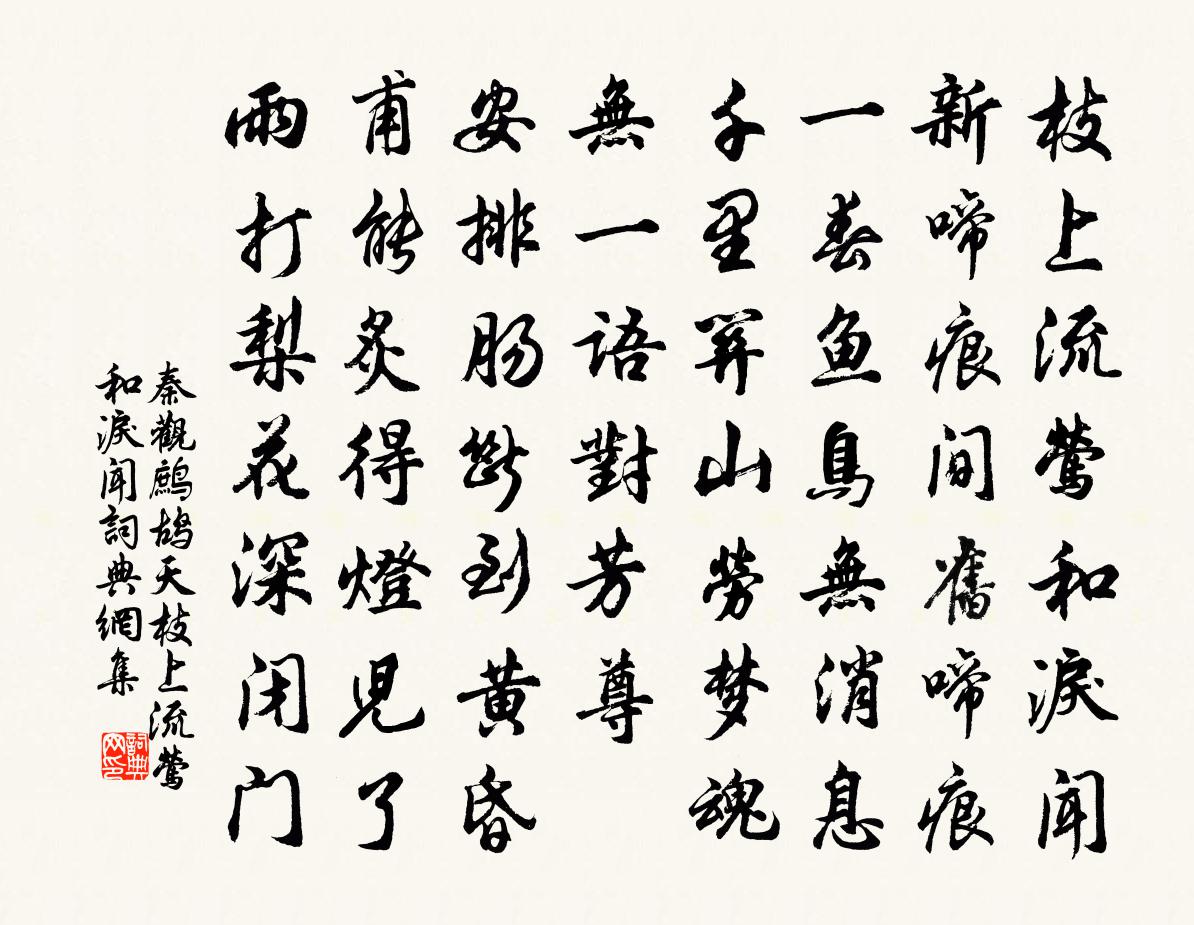 枝上流鶯和淚聞
新啼痕間舊啼痕
一春鱼鳥無消息
千里關山勞梦魂
無一語對芳尊
安排肠斷到黄昏
甫能炙得燈児了
雨打梨花深闭门
秦觀鷓鴣天枝上流鶯
和淚聞詞典網集
詞典
网印